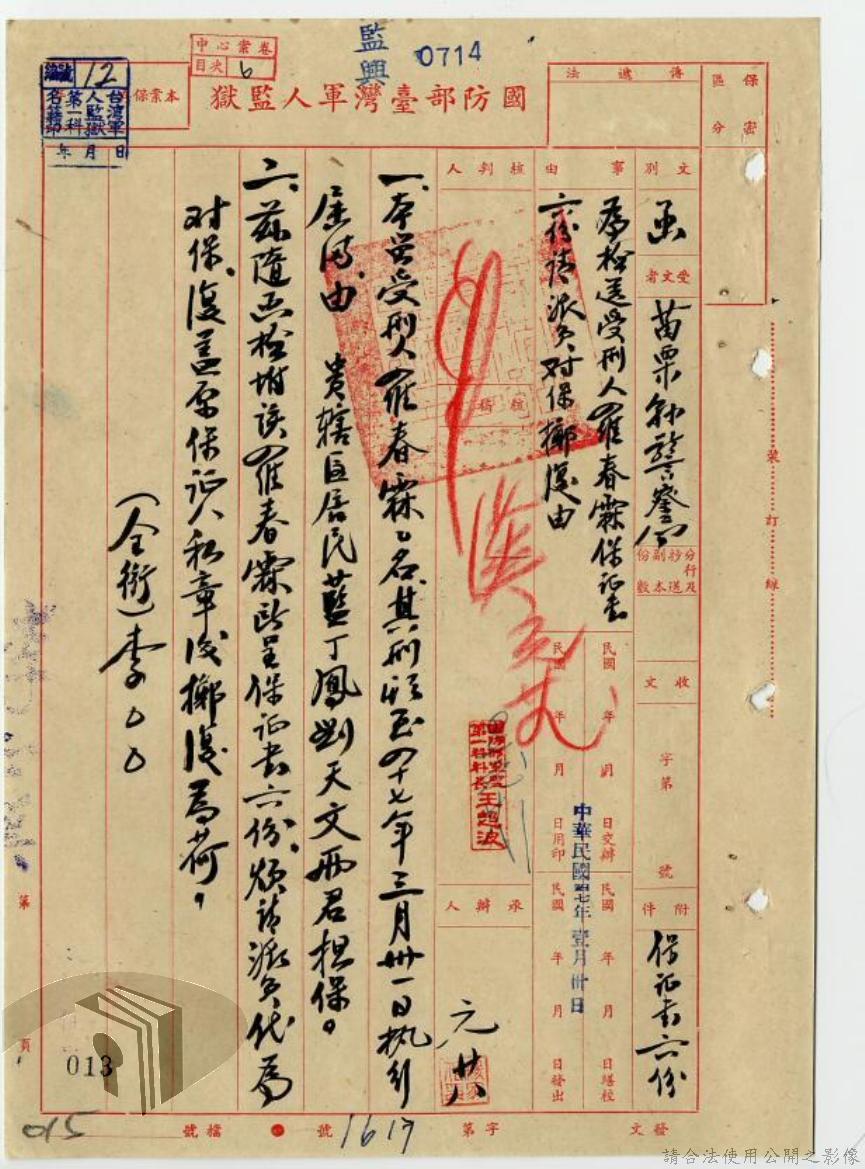 監興 0714
中心案卷
目次 6
編號 12
台灣軍人監獄
第一科
名籍
年 月 日
本案保
國防部臺灣軍人監獄
傳遞法
保密區分
文別
函
受文者
苗栗縣警察局
分行及抄送副本份數
收文 字第 號
附件
保証書六份
事由
為檢送受刑人羅春霖保証書
六份請派員对保擲復由
民國 年 月 日交辦
民國 年 月 日繕校
民國 年 月 日用印
民國 年 月 日發出
中華民國四七年壹月卅日
核判人
核稿
承辦人
第一科科長王超波
元廿八
一、本監受刑人羅春霖乙名、其刑期至四十七年三月卅一日执行
屆滿、由 貴轄區居民藍丁鳳劉天文兩君担保。
二、茲隨函檢附該羅春霖所呈保証書六份、煩請派員代為
对保、復蓋原保証人私章後擲復為荷。
(全銜)李〇〇
裝訂線
第 頁
013
發文 字第 1617 號
檔號
015
請合法使用公開之影像